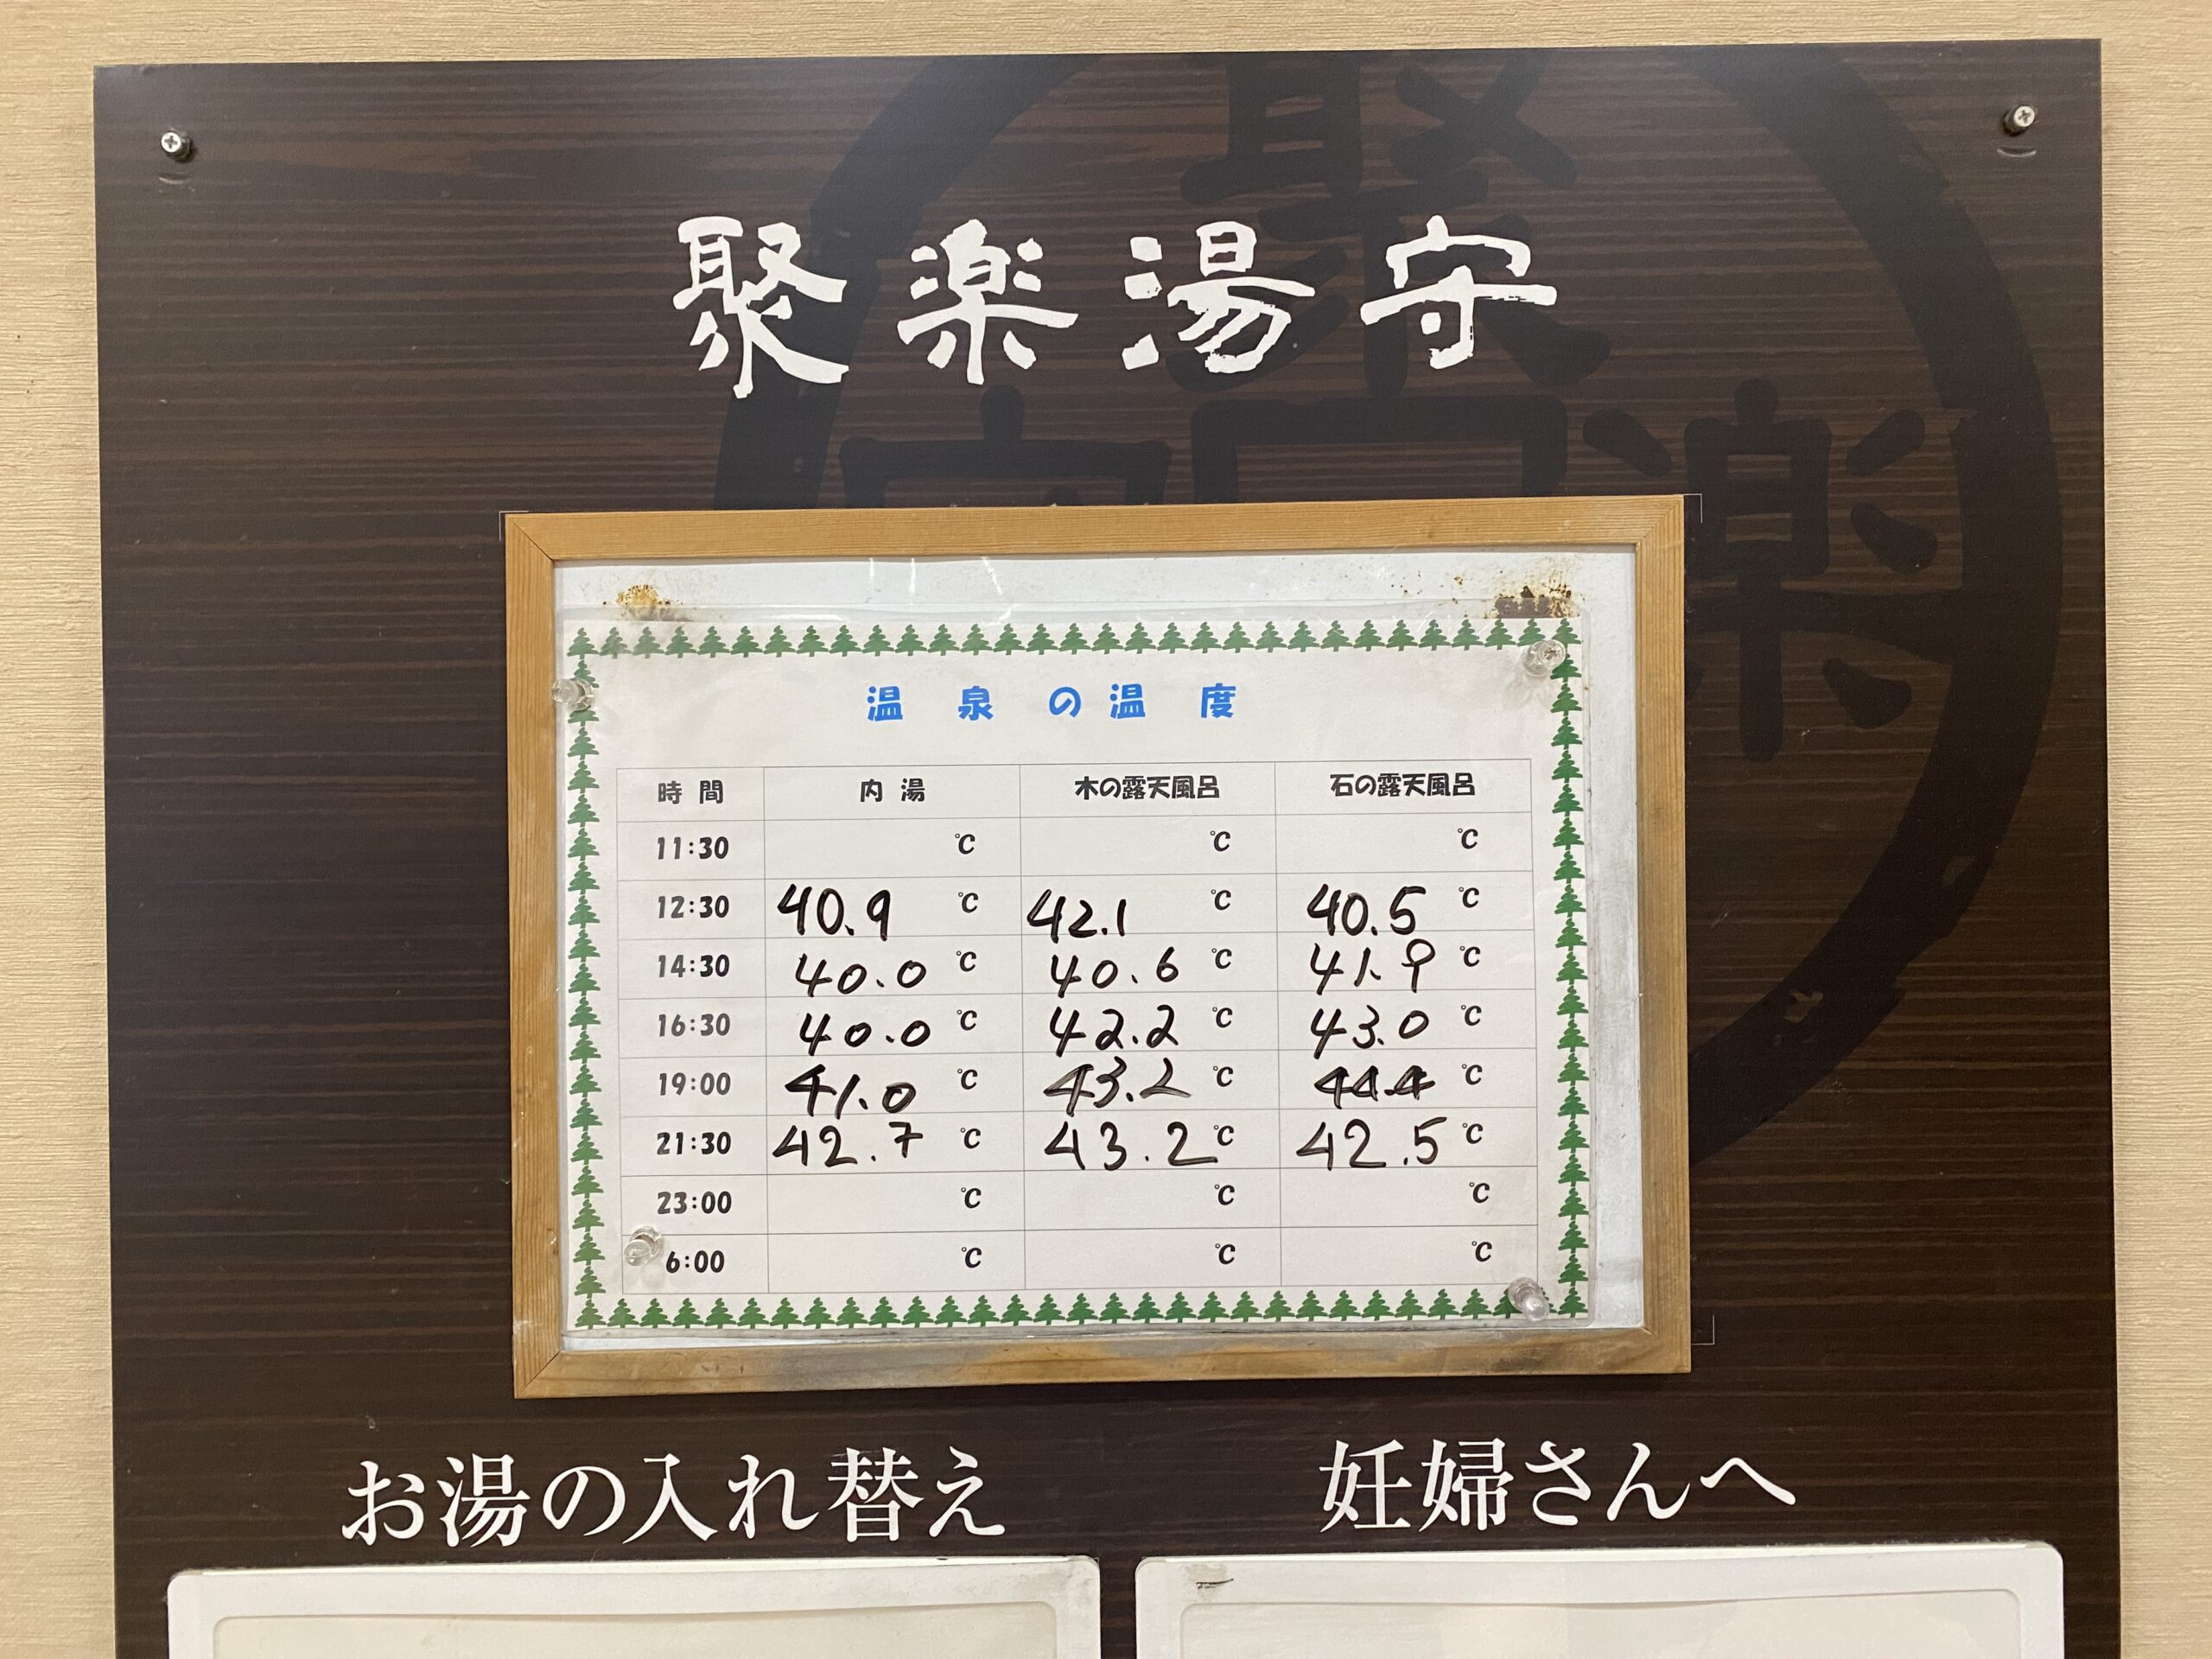 聚楽湯守
温泉の温度
時間 内湯 木の露天風呂 石の露天風呂
11:30 ℃ ℃ ℃
12:30 40.9 ℃ 42.1 ℃ 40.5 ℃
14:30 40.0 ℃ 40.6 ℃ 41.9 ℃
16:30 40.0 ℃ 42.2 ℃ 43.0 ℃
19:00 41.0 ℃ 43.2 ℃ 44.4 ℃
21:30 42.7 ℃ 43.2 ℃ 42.5 ℃
23:00 ℃ ℃ ℃
6:00 ℃ ℃ ℃
お湯の入れ替え 妊婦さんへ